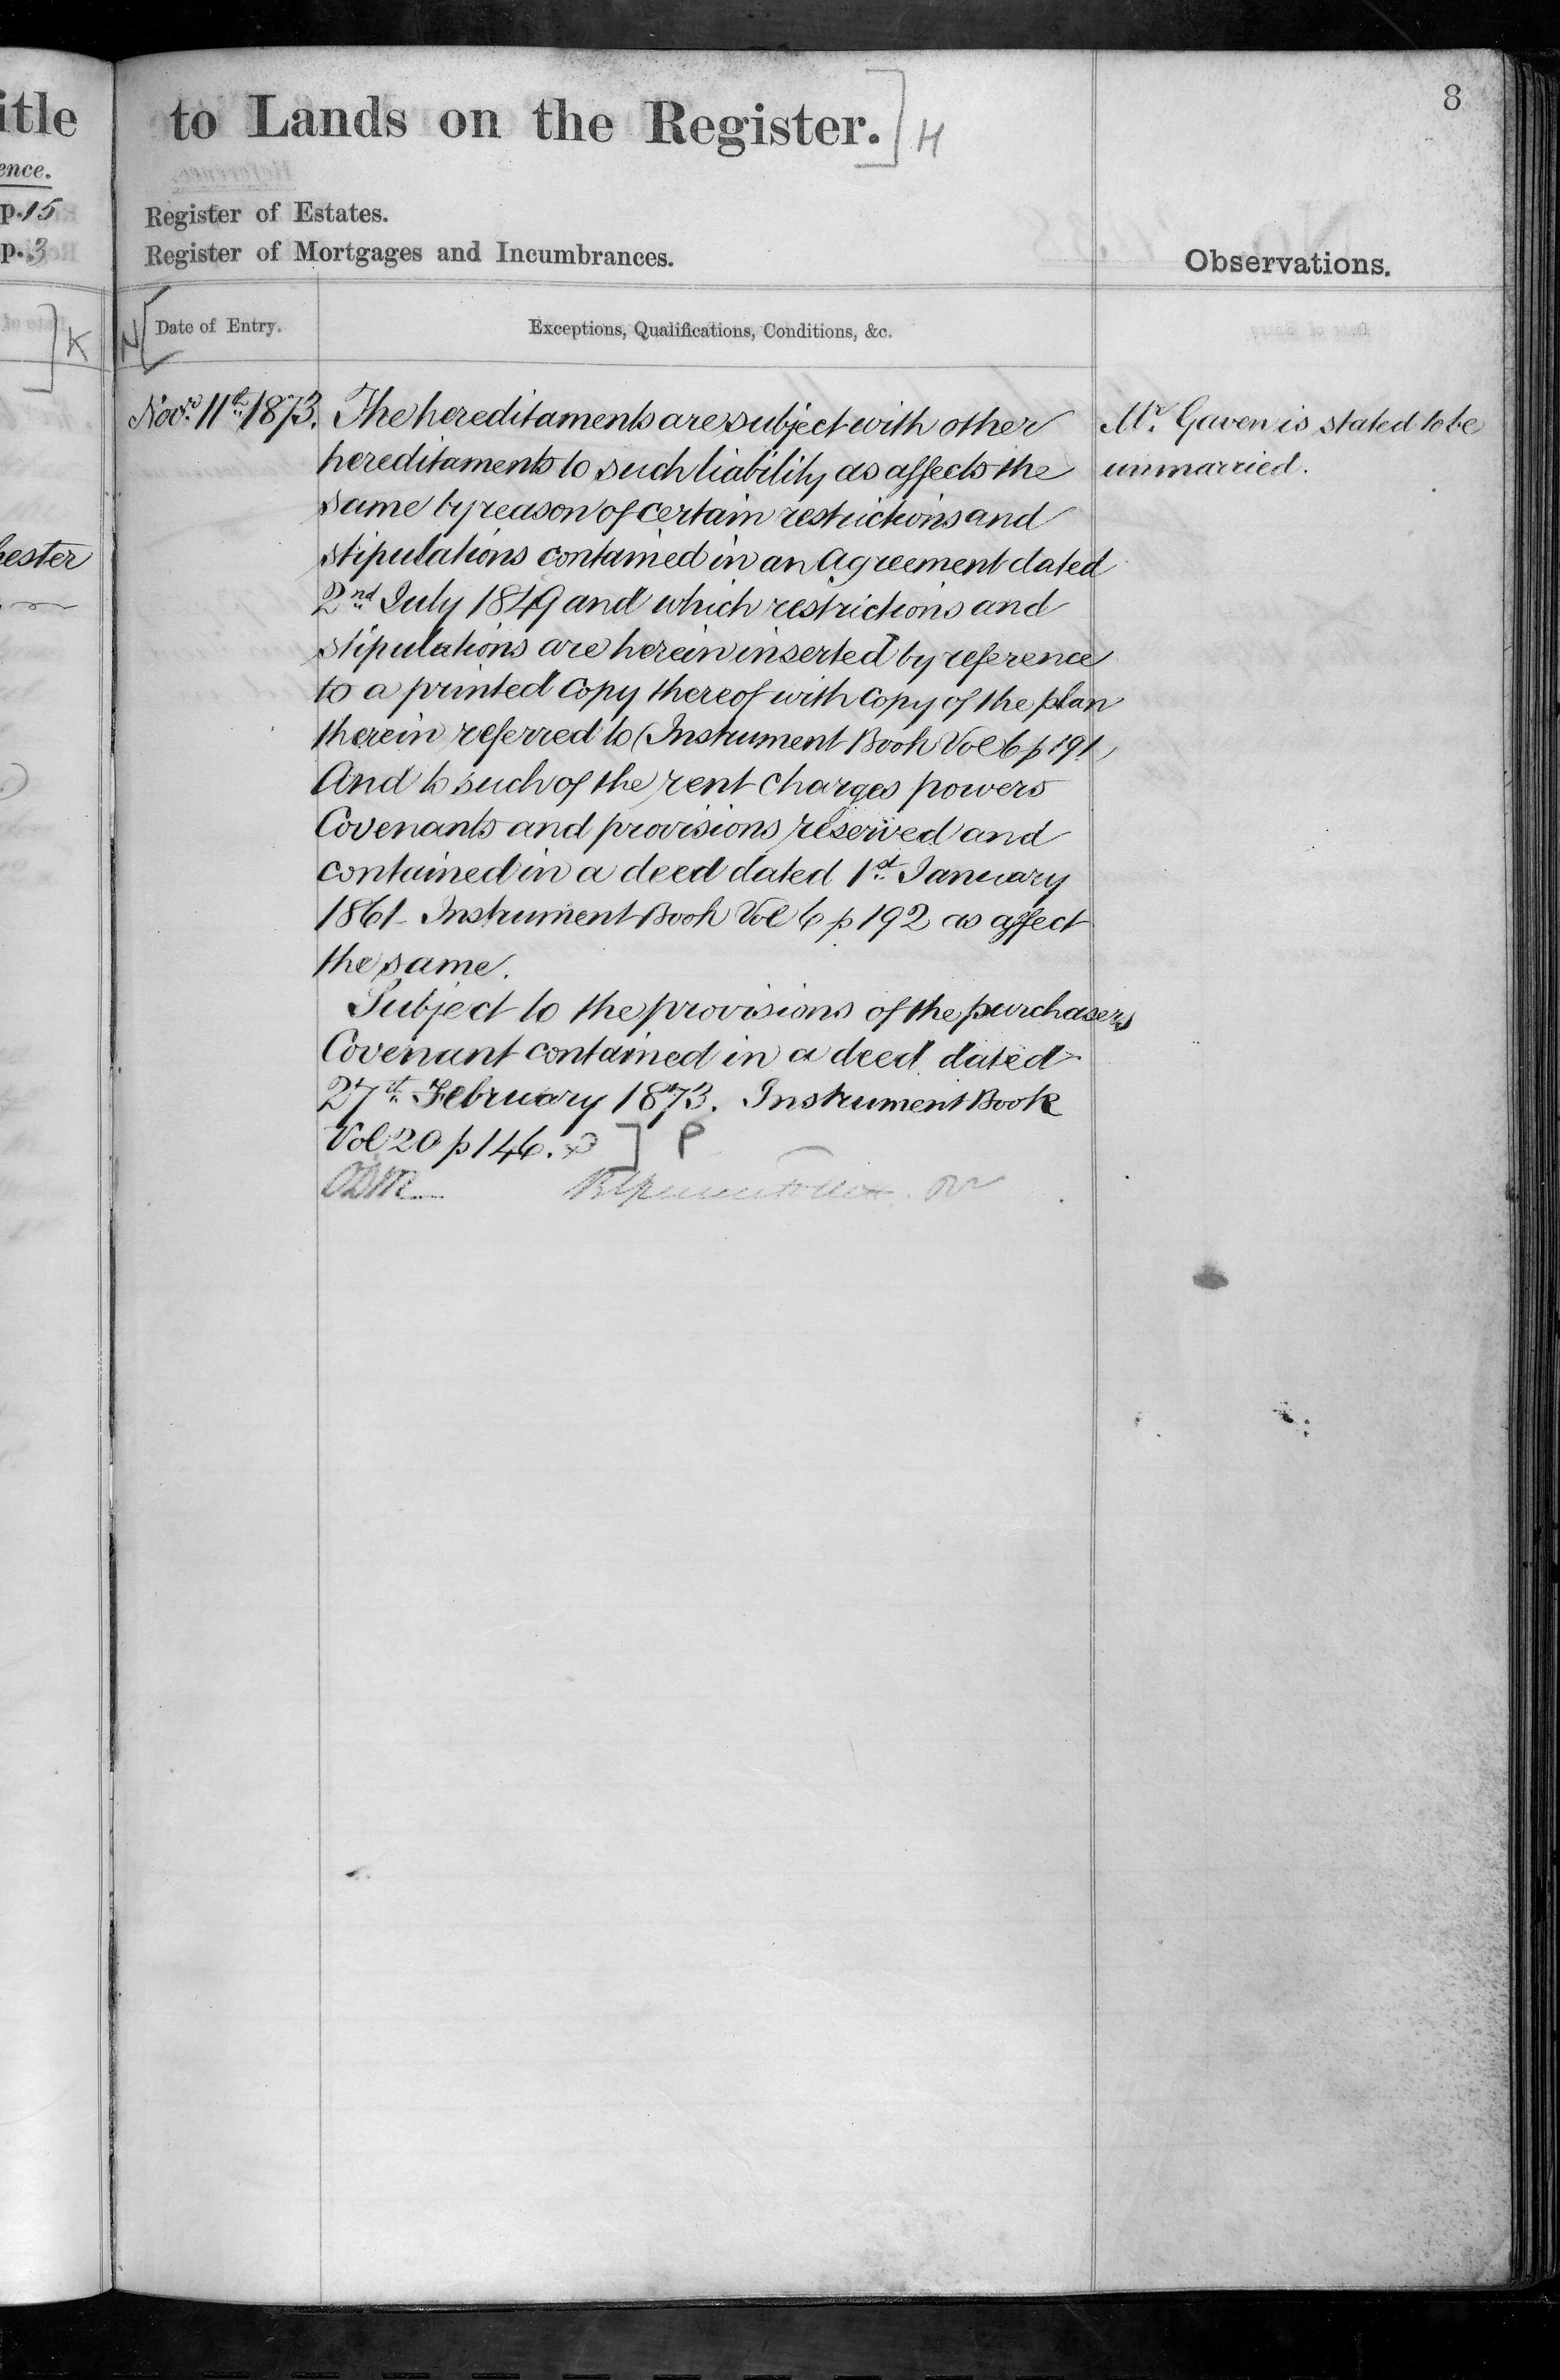 itle
ence.
p. 15
p. 3
K
hester
to Lands on the Register. H
8
Register of Estates.
Register of Mortgages and Incumbrances.
Observations.
N
Date of Entry.
Exceptions, Qualifications, Conditions, &c.
Novr. 11th 1873.
The hereditaments are subject with other
hereditaments to such liability as affects the
same by reason of certain restrictions and
stipulations contained in an Agreement dated
2nd July 1849 and which restrictions and
stipulations are herein inserted by reference
to a printed copy thereof with copy of the plan
therein referred to (Instrument Book Vol 6 p 191)
And to such of the rent charges powers
Covenants and provisions reserved and
contained in a deed dated 1st January
1861 – Instrument Book Vol 6 p 192 as affect
the same.
Subject to the provisions of the purchasers
Covenant contained in a deed dated
27th February 1873. Instrument Book
Vol 20 p 146. ] P
Mr. Gaven is stated to be
unmarried.